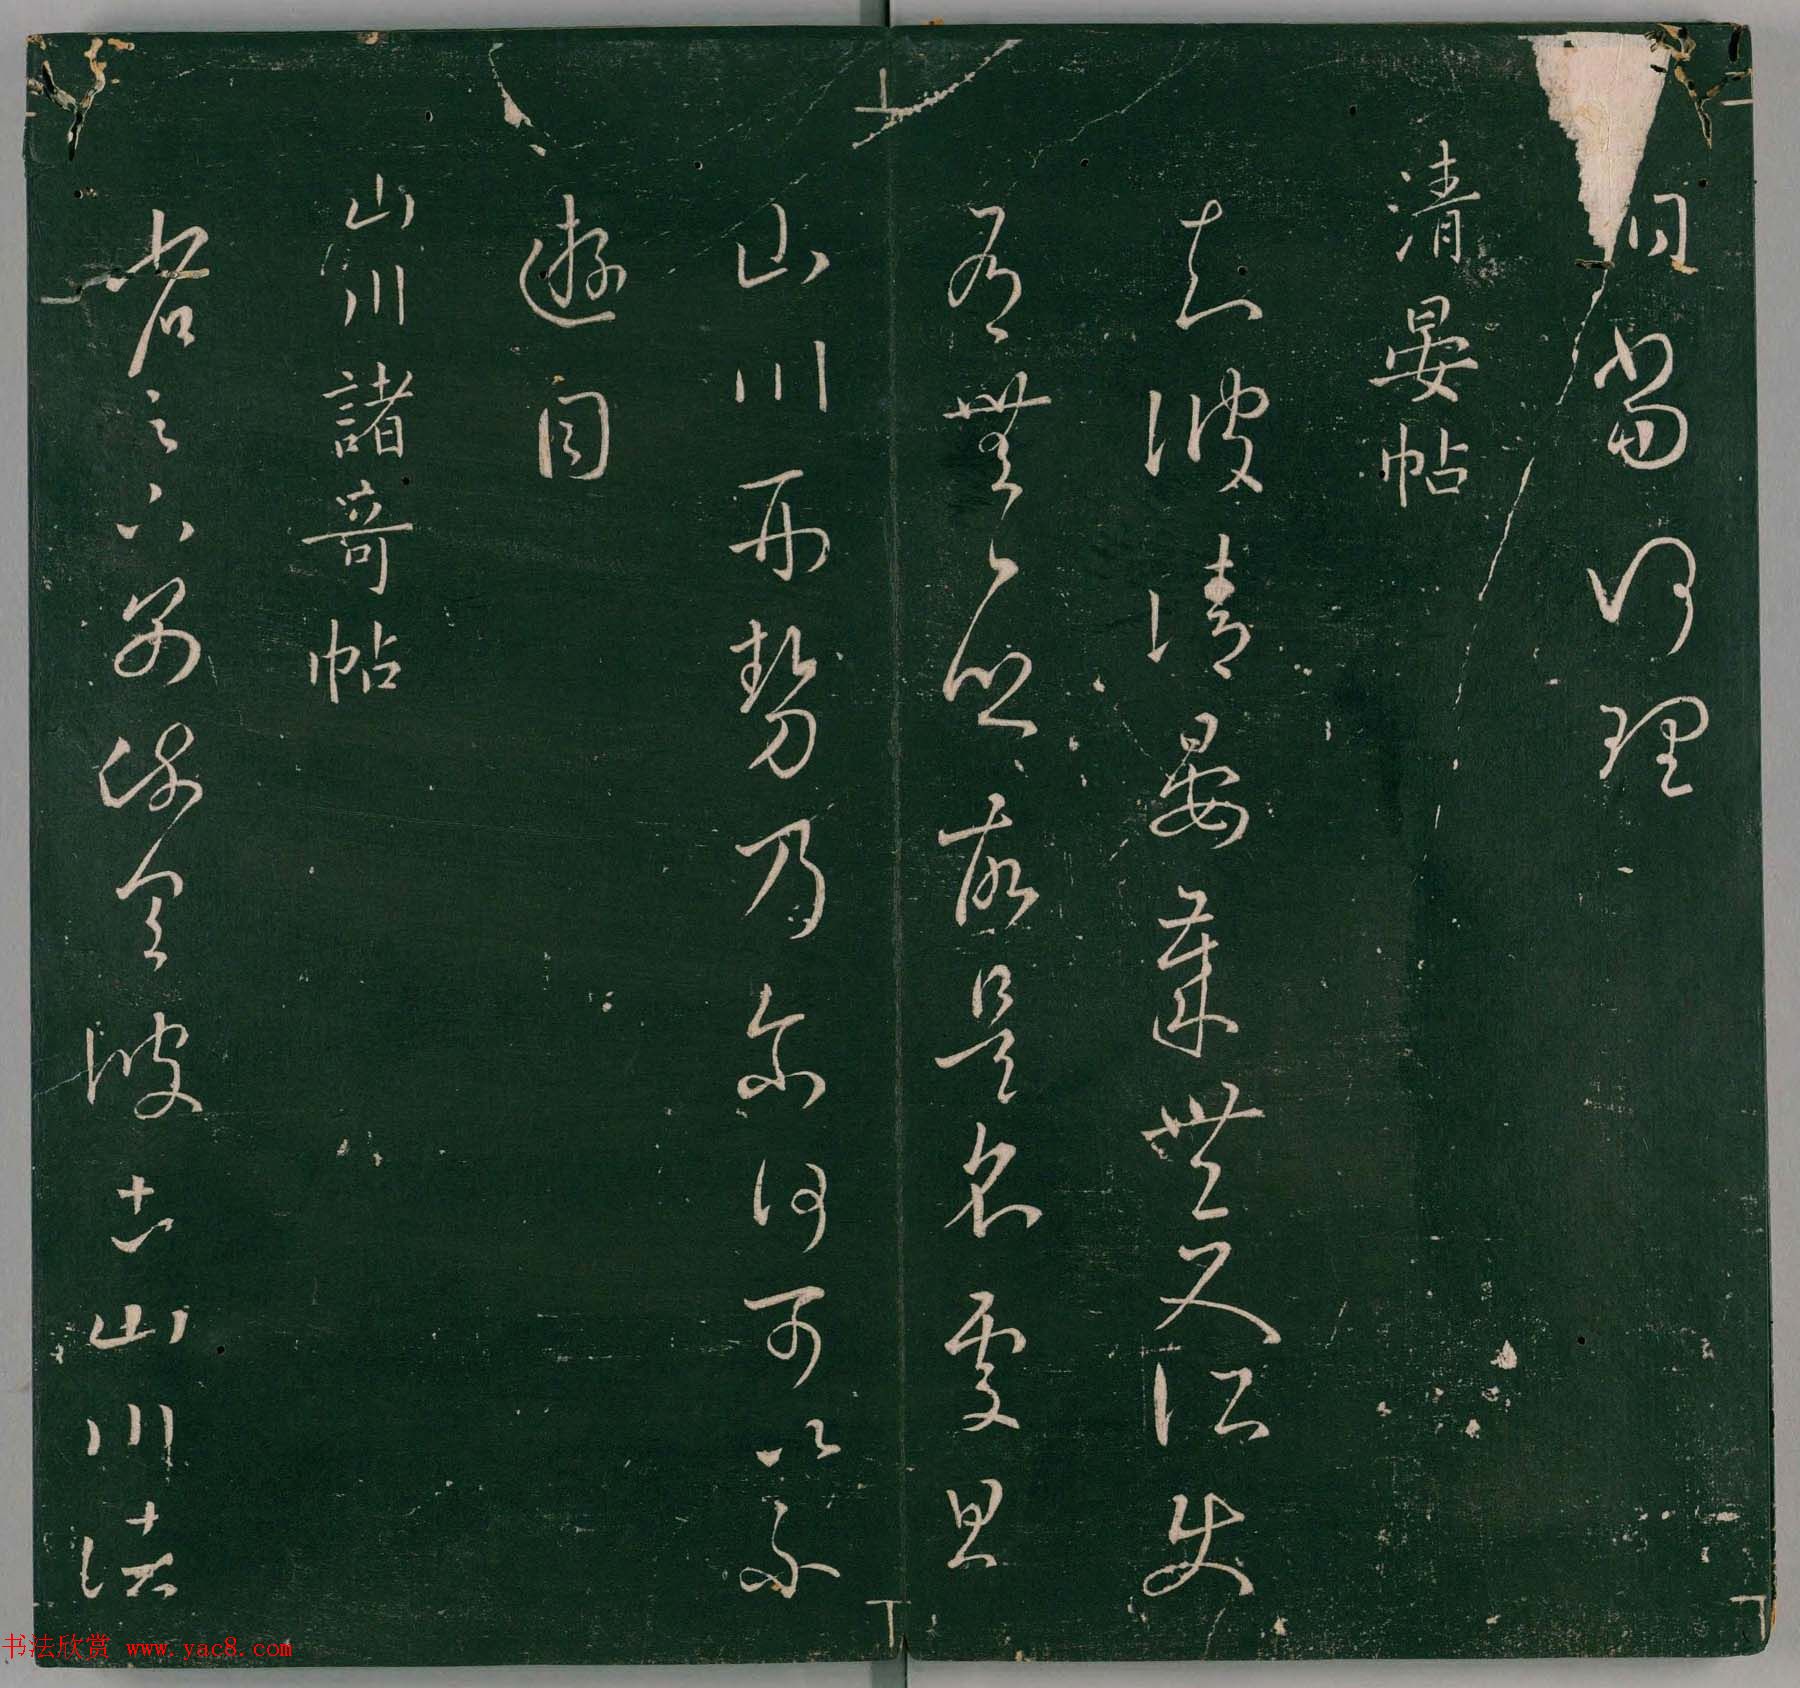 當何理
清晏帖
知彼清晏歲豐又所使
有無一鄉故是名處且
山川形勢乃爾何可以不
遊目
山川諸奇帖
省足下別疏具彼土山川諸
书法欣赏 www.yac8.com